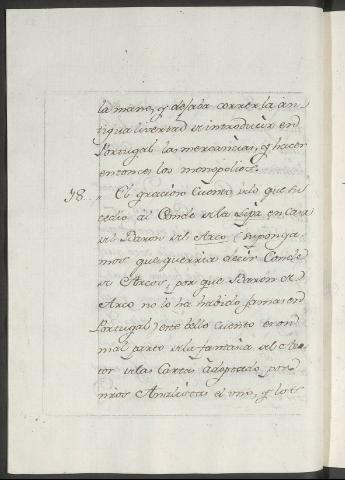 la mano, y dexaba correr la an-
tigua livertad de introducir en
Portugal las mercancias, y hacer
entonces los monopolios.
78.. „ El gracioso Cuento delo que su-
cedio al Conde dela Lipa en casa
del Baron del Arco (suponga-
mos que querria decir Conde
de Arcos, por que Baron del
Arco no lo ha habido jamas en
Portugal) este bello Cuento es un
mal parto dela fantasia del Au-
tor delas Cartas adoptado por
unos Analistas el uno, y los